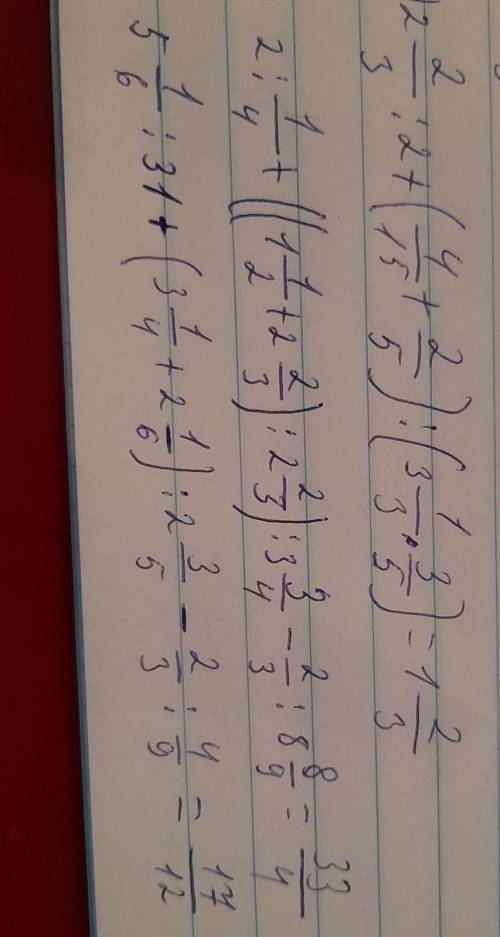 ) 2 2/3 : 2 + (4/15 + 2/5) : (3 1/3 · 3/5) = 1 2/3
2 : 1/4 + ((1 1/2 + 2 2/3) : 2 2/3) : 3 3/4 - 2/3 : 8 8/9 = 33/4
5 1/6 : 31 + (3 1/4 + 2 1/6) : 2 3/5 - 2/3 : 4/9 = 17/12